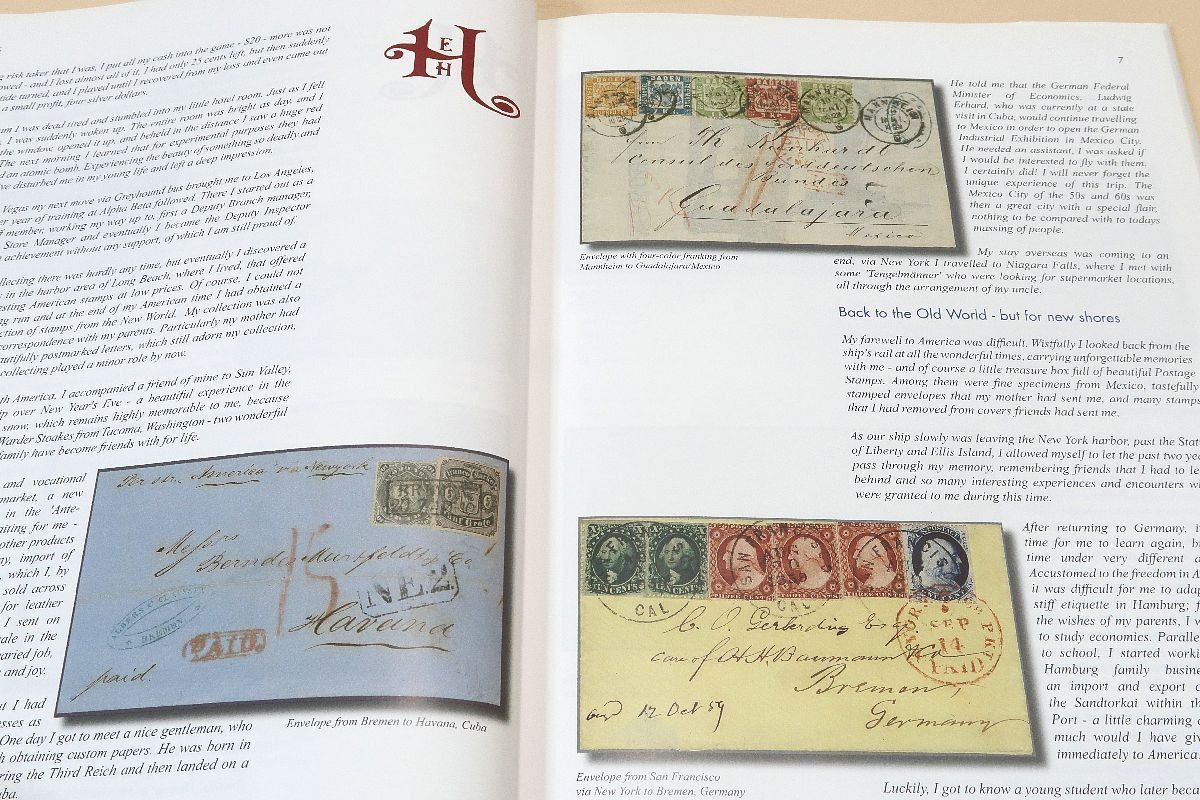 g risk taker that I was, I put all my cash into the game - $20 - more was not
owed - and I lost almost all of it. I had only 25 cents left, but then suddenly
tide turned, and I played until I recovered from my loss and even came out
a small profit, four silver dollars.
am I was dead tired and stumbled into my little hotel room. Just as I fell
, I was suddenly woken up. The entire room was bright as day, and I
the window, opened it up, and beheld in the distance I saw a huge red
The next morning I learned that for experimental purposes they had
d an atomic bomb. Experiencing the beauty of something so deadly and
ve disturbed me in my young life and left a deep impression.
Vegas my next move via Greyhound bus brought me to Los Angeles,
er year of training at Alpha Beta followed. There I started out as a
ff member, working my way up to, first a Deputy Branch manager,
Store Manager and eventually I became the Deputy Inspector,
achievement without any support, of which I am still proud of.
llecting there was hardly any time, but eventually I discovered a
in the harbor area of Long Beach, where I lived, that offered
esting American stamps at low prices. Of course, I could not
ng run and at the end of my American time I had obtained a
ction of stamps from the New World. My collection was also
correspondence with my parents. Particularly my mother had
utifully postmarked letters, which still adorn my collection,
collecting played a minor role by now.
th America, I accompanied a friend of mine to Sun Valley,
ip over New Year's Eve - a beautiful experience in the
snow, which remains highly memorable to me, because
Warder Stoakes from Tacoma, Washington - two wonderful
family have become friends with for life.
and vocational
market, a new
in the 'Ante-
aiting for me -
other products
ny, import of
, which I, by
sold across
for leather
I sent on
ale in the
varied job,
e and joy.
ut I had
esses as
One day I got to meet a nice gentleman, who
h obtaining custom papers. He was born in
ring the Third Reich and then landed on a
uba.
E
H
H
Per str. America via Newyork
6
6
Messrs
15
N.E.2
Havana
ALBERS
BREMEN
PAID.
paid.
Envelope from Bremen to Havana, Cuba
7
BADEN
BADEN
BADEN
MANNHEIM
MANNHEIM
Consul des norddeutschen
Bundes
Guadalajara
Mexico
Envelope with four-color franking from
Mannheim to Guadalajara/Mexico
He told me that the German Federal
Minister of Economics, Ludwig
Erhard, who was currently at a state
visit in Cuba, would continue travelling
to Mexico in order to open the German
Industrial Exhibition in Mexico City.
He needed an assistant, I was asked if
I would be interested to fly with them.
I certainly did! I will never forget the
unique experience of this trip. The
Mexico City of the 50s and 60s was
then a great city with a special flair,
nothing to be compared with to todays
massing of people.
My stay overseas was coming to an
end, via New York I travelled to Niagara Falls, where I met with
some 'Tengelmänner' who were looking for supermarket locations,
all through the arrangement of my uncle.
Back to the Old World - but for new shores
My farewell to America was difficult. Wistfully I looked back from the
ship's rail at all the wonderful times, carrying unforgettable memories
with me - and of course a little treasure box full of beautiful Postage
Stamps. Among them were fine specimens from Mexico, tastefully
stamped envelopes that my mother had sent me, and many stamps
that I had removed from covers friends had sent me.
As our ship slowly was leaving the New York harbor, past the Stat
of Liberty and Ellis Island, I allowed myself to let the past two yea
pass through my memory, remembering friends that I had to le
behind and so many interesting experiences and encounters wh
were granted to me during this time.
TEN CENTS
TEN CENTS
THREE CENTS
THREE CENTS
THREE CENTS
SAN
CAL
SAN
CAL
C. O. Gerlerding Esq
care of H. H. Baumann
Bremen,
Germany
12 Oct 59
SEP
14
PAID
Envelope from San Francisco
via New York to Bremen, Germany
After returning to Germany, i
time for me to learn again, bu
time under very different a
Accustomed to the freedom in A
it was difficult for me to adap
stiff etiquette in Hamburg; f
the wishes of my parents, I w
to study economics. Paralle
to school, I started worki
Hamburg family busine
an import and export c
the Sandtorkai within the
Port - a little charming c
much would I have giv
immediately to America.
Luckily, I got to know a young student who later beca